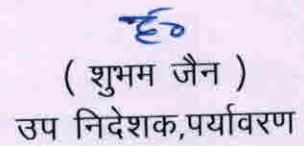 ह०
( शुभम जैन )
उप निदेशक,पर्यावरण